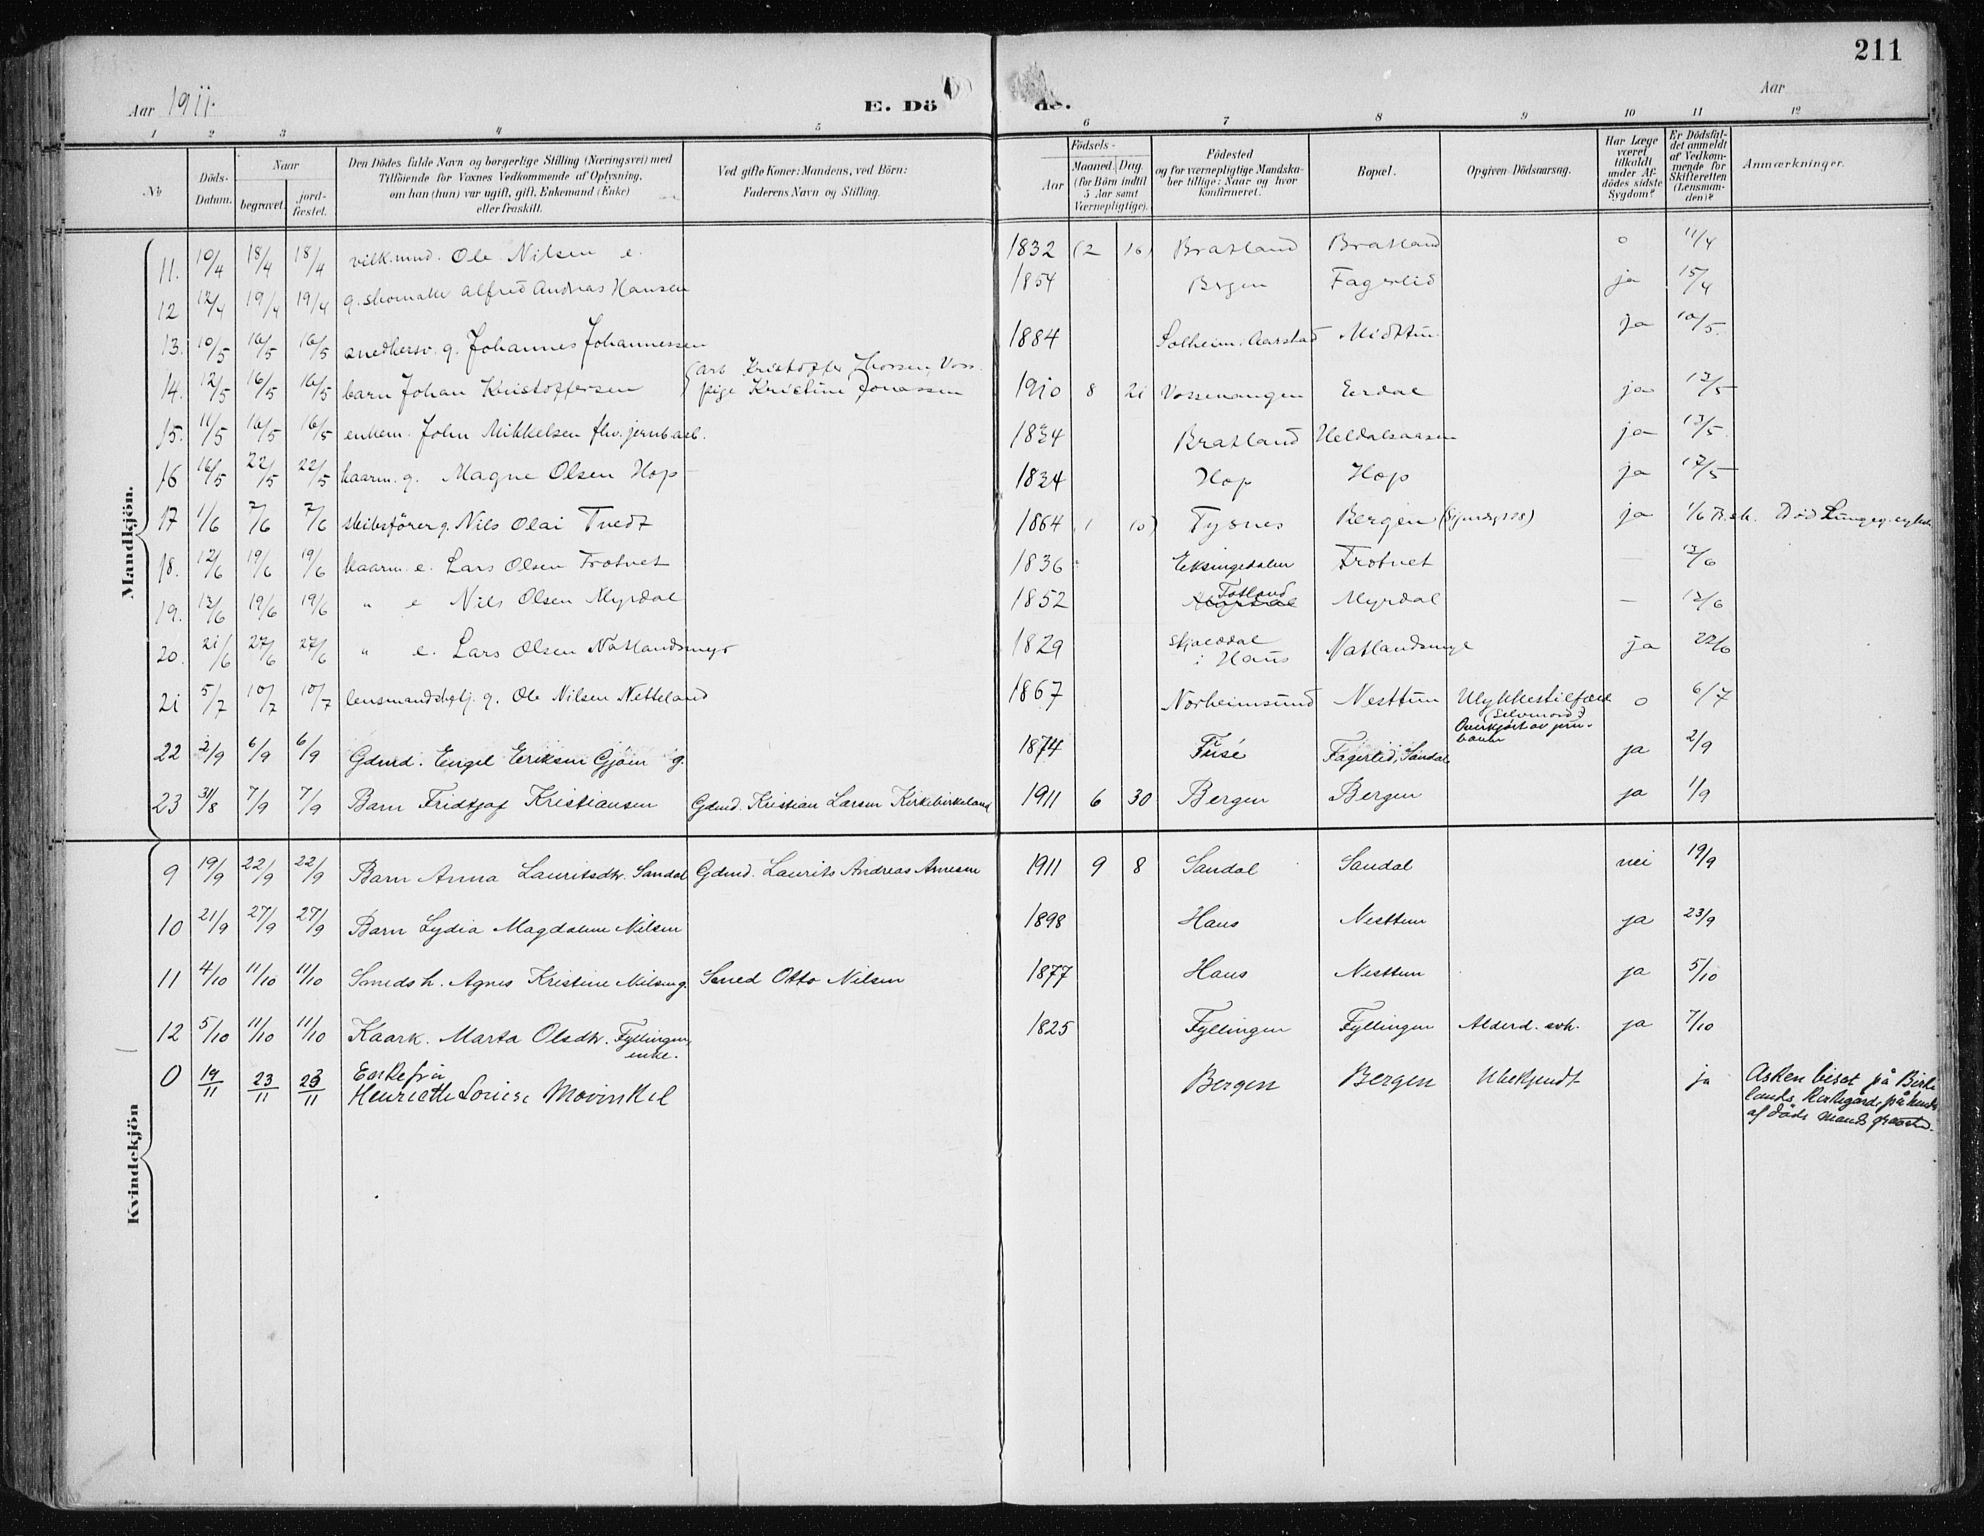 211
Aar 1911.
E. Dö de.
Aar
1 2 3 4 5 6 7 8 9 10 11 12
No
Döds-Datum.
Naar
begravet.
jord-fæstet.
Den Dödes fulde Navn og borgerlige Stilling (Næringsvei) med
Tilföiende for Voxnes Vedkommende af Oplysning,
om han (hun) var ugift, gift, Enkemand (Enke)
eller fraskilt.
Ved gifte Koner: Mandens, ved Börn:
Faderens Navn og Stilling.
Födsels-
Aar
Maaned. Dag.
(for Börn indtil
5 Aar samt
Værnepligtige).
Födested
og for værnepligtige Mandska-
ber tillige: Naar og hvor
konfirmeret.
Bopæl.
Opgiven Dödsaarsag.
Har Læge
været
tilkaldt
under Af-
dödes sidste
Sygdom?
Er Dödsfal-
det anmeldt
af Vedkom-
mende for
Skifteretten
(Lensman-
den)?
Anmærkninger.
Mandkjön.
11. 10/4 18/4 18/4 vilk.mnd. Ole Nilsen e. 1832 (2 16) Bratland Bratland o 11/4
12 12/4 19/4 19/4 g. skomaker Alfred Andreas Hansen 1854 Bergen Fagerlid ja 15/4
13. 10/5 16/5 16/5 g. Johannes Johannessen 1884 Solheim. Aarstad Midttun ja 10/5
14. 12/5 16/5 16/5 barn Johan Kristoffersen (arb Kristoffer Thorsen, Voss. 1910 8 21 Vossevangen Eerdal ja 13/5
pige Kristine Jonassen
15. 11/5 16/5 16/5 enkem. John Mikkelsen fhv. jernb.arb. 1834 Bratland Heldalsaasen ja 13/5
16 16/5 22/5 22/5 kaarm. g. Magne Olsen Hop 1834 Hop Hop ja 17/5
17 1/6 7/6 7/6 skibsförer g. Nils Olai Tvedt 1864 1 10) Tysnes Bergen ja 1/6 Död
18. 12/6 19/6 19/6 kaarm. e. Lars Olsen Frotvet 1836 Eksingedalen Frotvet — 13/6
19. 13/6 19/6 19/6 " e Nils Olsen Myrdal 1852 Totland Myrdal — 13/6
20. 21/6 27/6 27/6 " e. Lars Olsen Natlandsmyr 1829 Skjoldal i Haus Natlandsmyr ja 22/6
21 5/7 10/7 10/7 g. Ole Nilsen Netteland 1867 Norheimsund Nesttun Ulykkestilfælde o 6/7
(Selvmord)
Overkjört av jern-
banen
22 2/9 6/9 6/9 Gdmd. Engel Eriksen Gjöen g. 1874 Fusé Fagerlid, Sandal ja 2/9
23 31/8 7/9 7/9 Barn Fridtjof Kristiansen Gdmd. Kristian Larsen Kirkebirkeland 1911 6 30 Bergen Bergen ja 1/9
Kvindekjön
9 19/9 22/9 22/9 Barn Anna Lauritsdtr. Sandal Gdmd. Laurits Andreas Arnesen 1911 9 8 Sandal Sandal nei 19/9
10 21/9 27/9 27/9 Barn Lydia Magdalene Nilsen 1898 Haus Nesttun ja 23/9
11 4/10 11/10 11/10 Smedsh. Agnes Kristine Nilsen g. Smed Otto Nilsen 1877 Haus Nesttun ja 5/10
12 5/10 11/10 11/10 Kaark. Marta Olsdtr. Fyllingen, 1825 Fyllingen Fyllingen Alderd. svh. ja 7/10
enke.
0 19/11 23/11 23/11 Enkefru Bergen Bergen Ubekjendt ja Asken biset på Birke
Henriette Louise Mowinkel lands Kirkegård, på hendes
af döde mands gravsted.